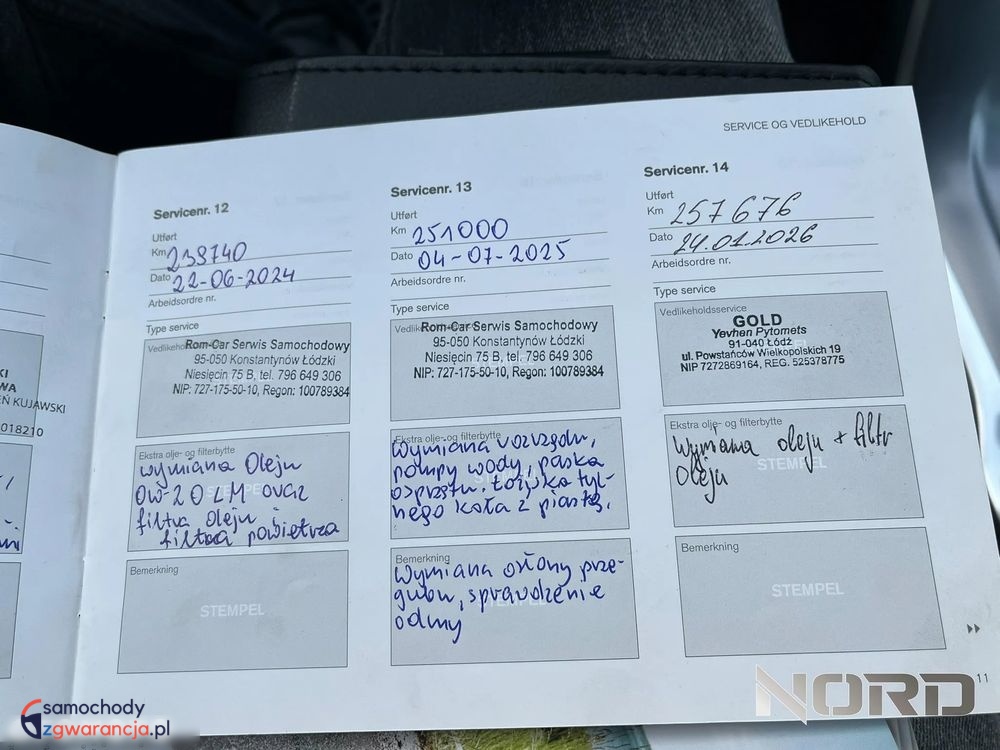 SERVICE OG VEDLIKEHOLD
Servicenr. 12
Utført
Km 238740
Dato 22-06-2024
Arbeidsordre nr.
Type service
Rom-Car Serwis Samochodowy
95-050 Konstantynów Łódzki
Niesięcin 75 B, tel. 796 649 306
NIP: 727-175-50-10, Regon: 100789384
Ekstra olje- og filterbytte
wymiana Oleju
0W-20 LM oraz
filtra oleju i
filtra powietrza
Bemerkning
STEMPEL
Servicenr. 13
Utført
Km 251000
Dato 04-07-2025
Arbeidsordre nr.
Type service
Rom-Car Serwis Samochodowy
95-050 Konstantynów Łódzki
Niesięcin 75 B, tel. 796 649 306
NIP: 727-175-50-10, Regon: 100789384
Ekstra olje- og filterbytte
Wymiana rozrządu,
pompy wody, paska
osprzętu. Łożyska tyl-
nego koła z piastą.
Bemerkning
Wymiana osłony prze-
gubów, sprawdzenie
odmy
Servicenr. 14
Utført
Km 257676
Dato 24.01.2026
Arbeidsordre nr.
Type service
Vedlikeholdsservice
GOLD
Yevhen Pytomets
91-040 Łódź
ul. Powstańców Wielkopolskich 19
NIP 7272869164, REG. 525378775
Ekstra olje- og filterbytte
Wymiana oleju + filtr
Oleju
STEMPEL
Bemerkning
STEMPEL
11
KI
WA
EŃ KUJAWSKI
018210
samochody
zgwarancja.pl
NORD